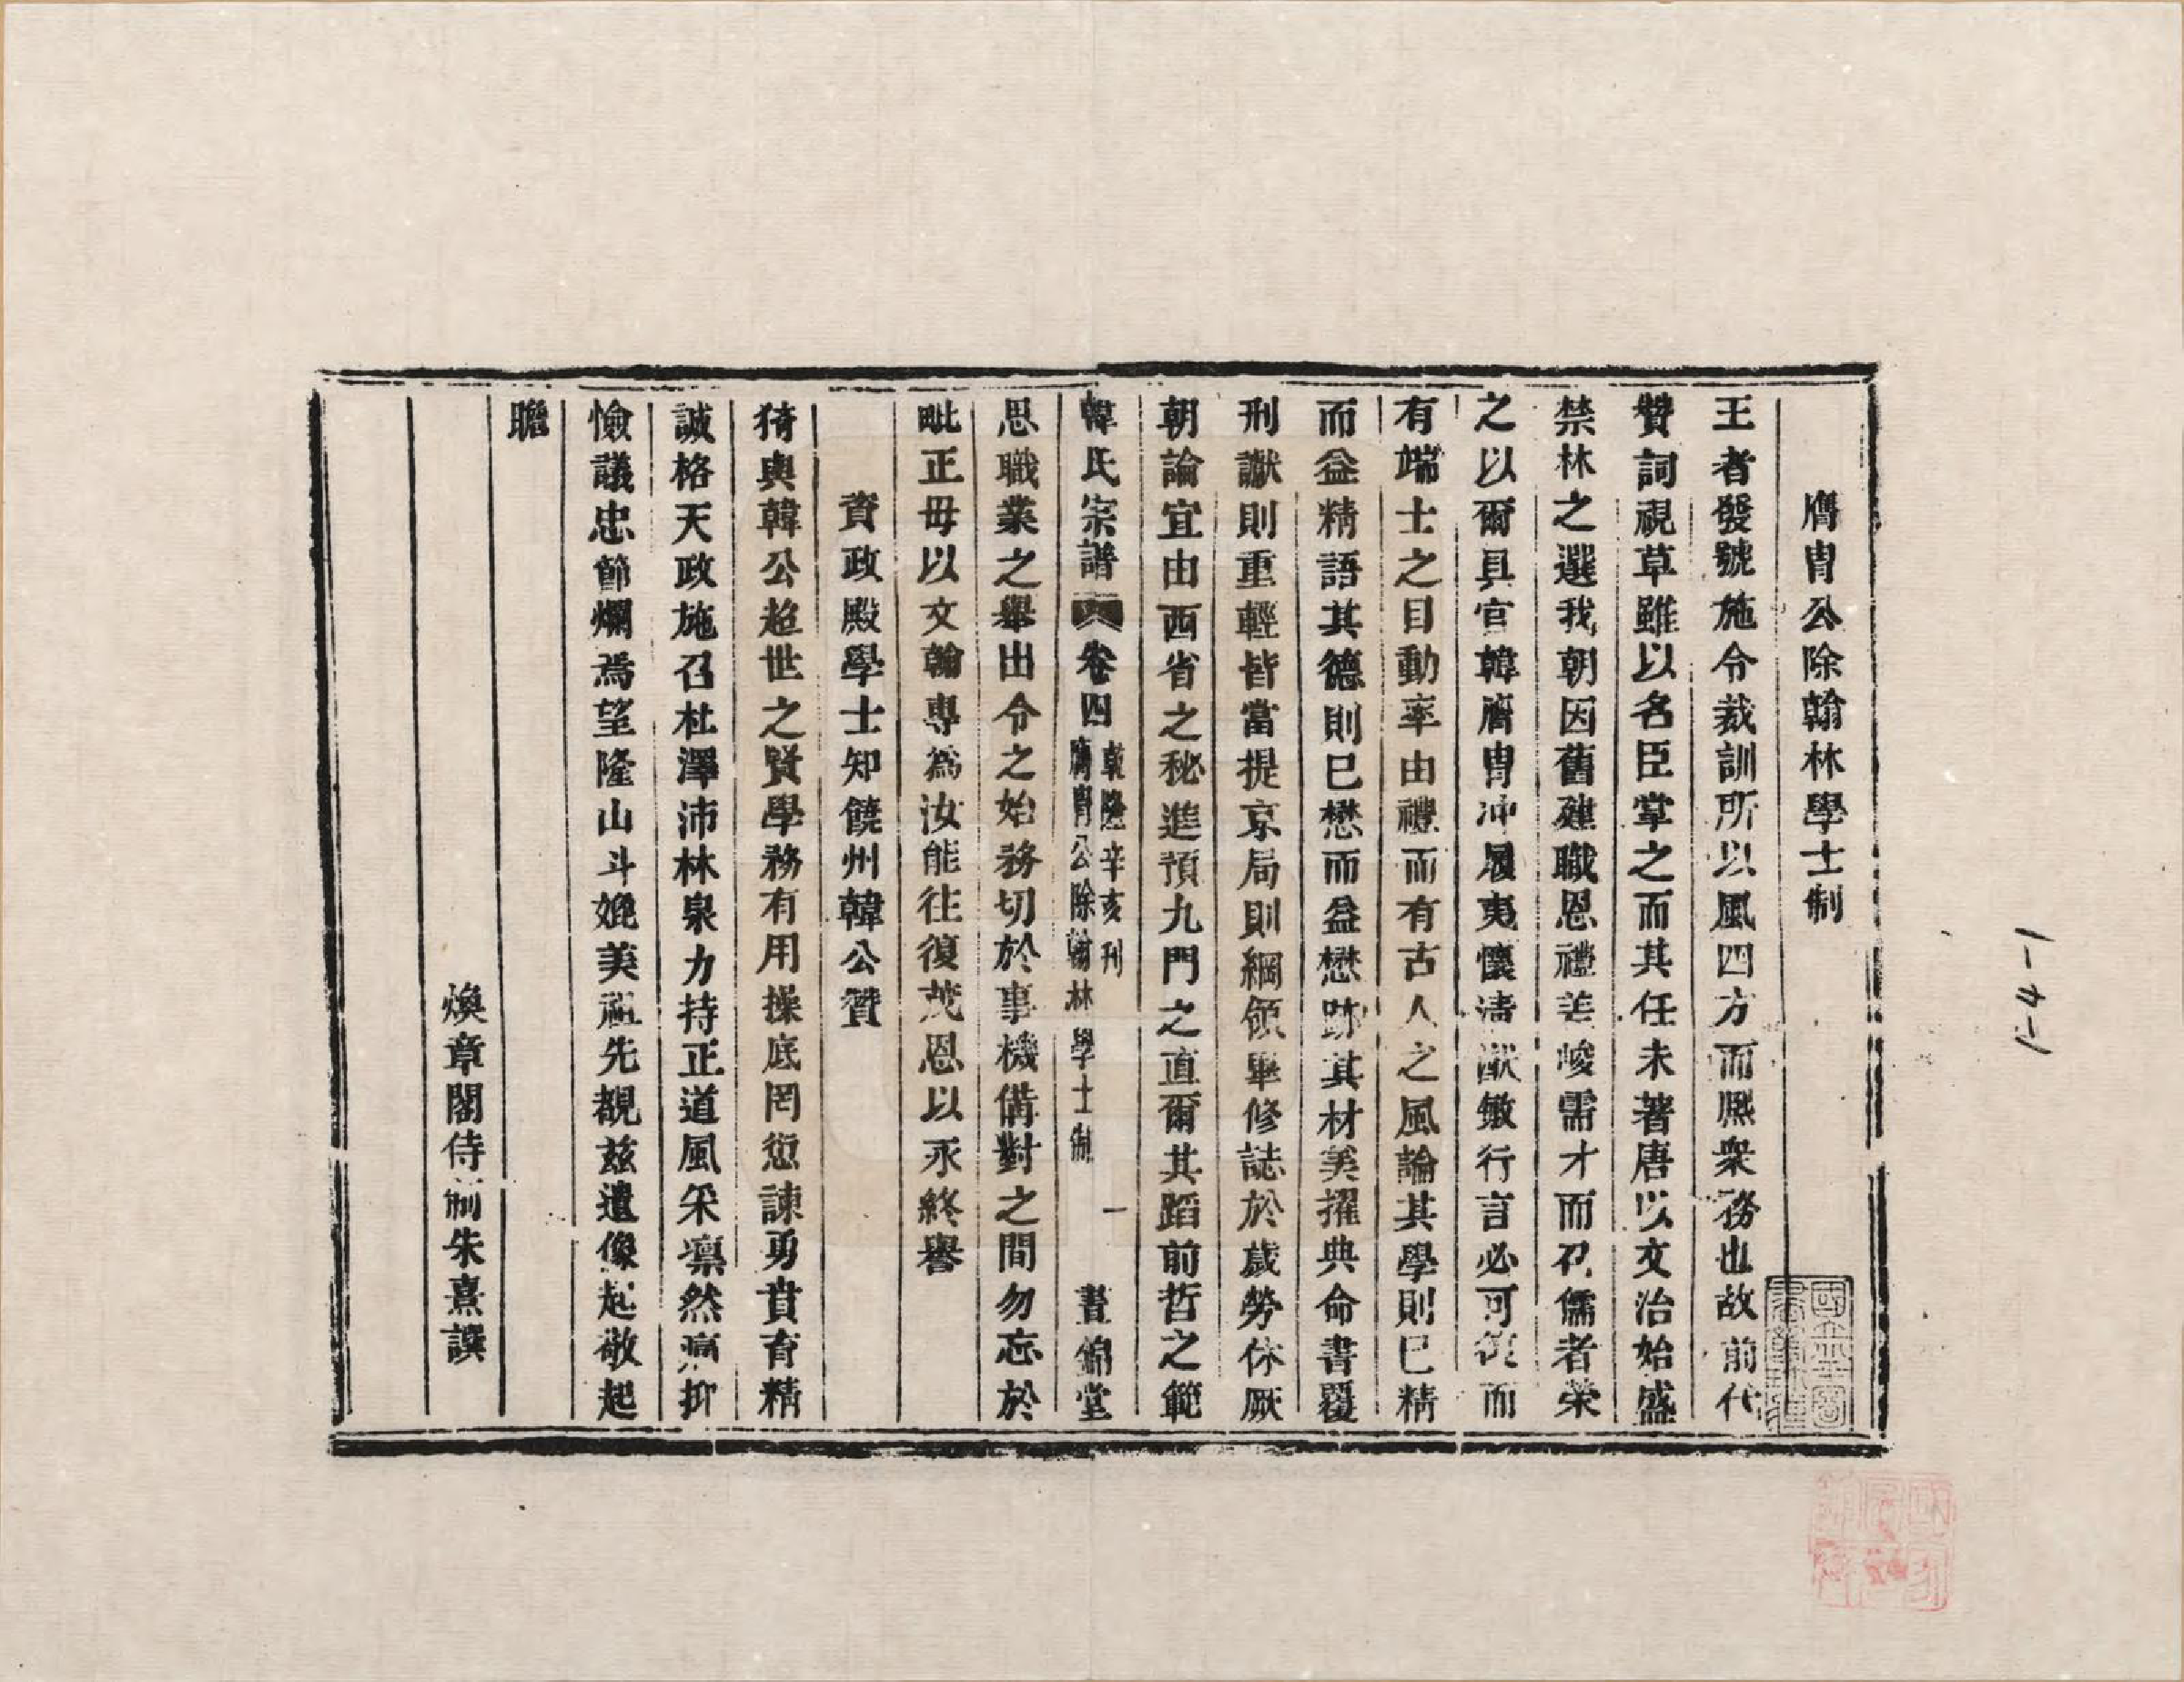 膺胄公除翰林學士制
王者發號施令裁訓所以風四方而熈衆務也故前代
贊詞視草雖以名臣掌之而其任未著唐以文治始盛
禁林之選我朝因舊建職恩禮差峻需才而召儒者榮
之以爾具官韓膺胄冲履夷懷淸猷敏行言必可從而
有端士之目動率由禮而有古人之風論其學則已精
而益精語其德則已懋而益懋跡其材美擢典命書覆
刑讞則重輕皆當提京局則綱領畢修誌於歲勞休厥
朝論宜由西省之秘進預九門之直爾其蹈前哲之範
韓氏宗譜 卷四 乾隆辛亥刊 膺胄公除翰林學士制 一 晝錦堂
思職業之舉出令之始務切於事機備對之間勿忘於
毗正毋以文翰專爲汝能往復茂恩以永終譽
資政殿學士知饒州韓公贊
猗輿韓公超世之賢學務有用操底罔愆諫勇賁育精
誠格天政施召杜澤沛林泉力持正道風采凛然痛抑
憸議忠節爛焉望隆山斗媲美祖先覩兹遺像起敬起
瞻
煥章閣侍制朱熹譔